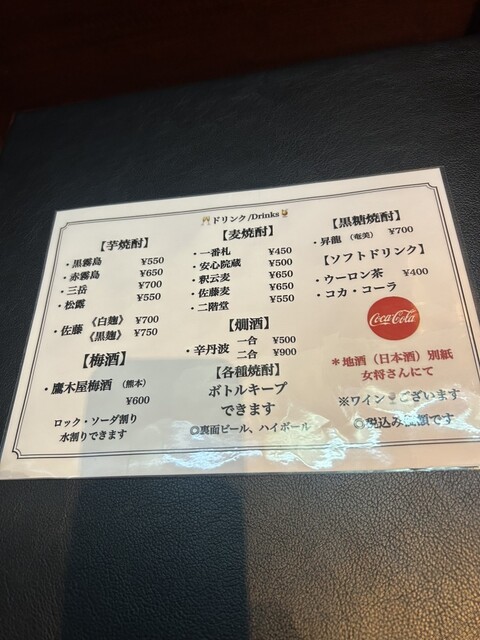 ドリンク/Drinks
【芋焼酎】
・黒霧島 ¥550
・赤霧島 ¥650
・三岳 ¥700
・松露 ¥550
・佐藤 《白麹》 ¥700
《黒麹》 ¥750
【梅酒】
・鷹木屋梅酒 (熊本)
¥600
ロック・ソーダ割り
水割りできます
【麦焼酎】
・一番札 ¥450
・安心院蔵 ¥500
・釈云麦 ¥650
・佐藤麦 ¥650
・二階堂 ¥550
【燗酒】
・辛丹波 一合 ¥500
二合 ¥900
【各種焼酎】
ボトルキープ
できます
◎裏面ビール、ハイボール
【黒糖焼酎】
・昇龍 (奄美) ¥700
【ソフトドリンク】
・ウーロン茶 ¥400
・コカ・コーラ
Coca-Cola
＊地酒（日本酒）別紙
女将さんにて
※ワインございます
◎税込み価額です